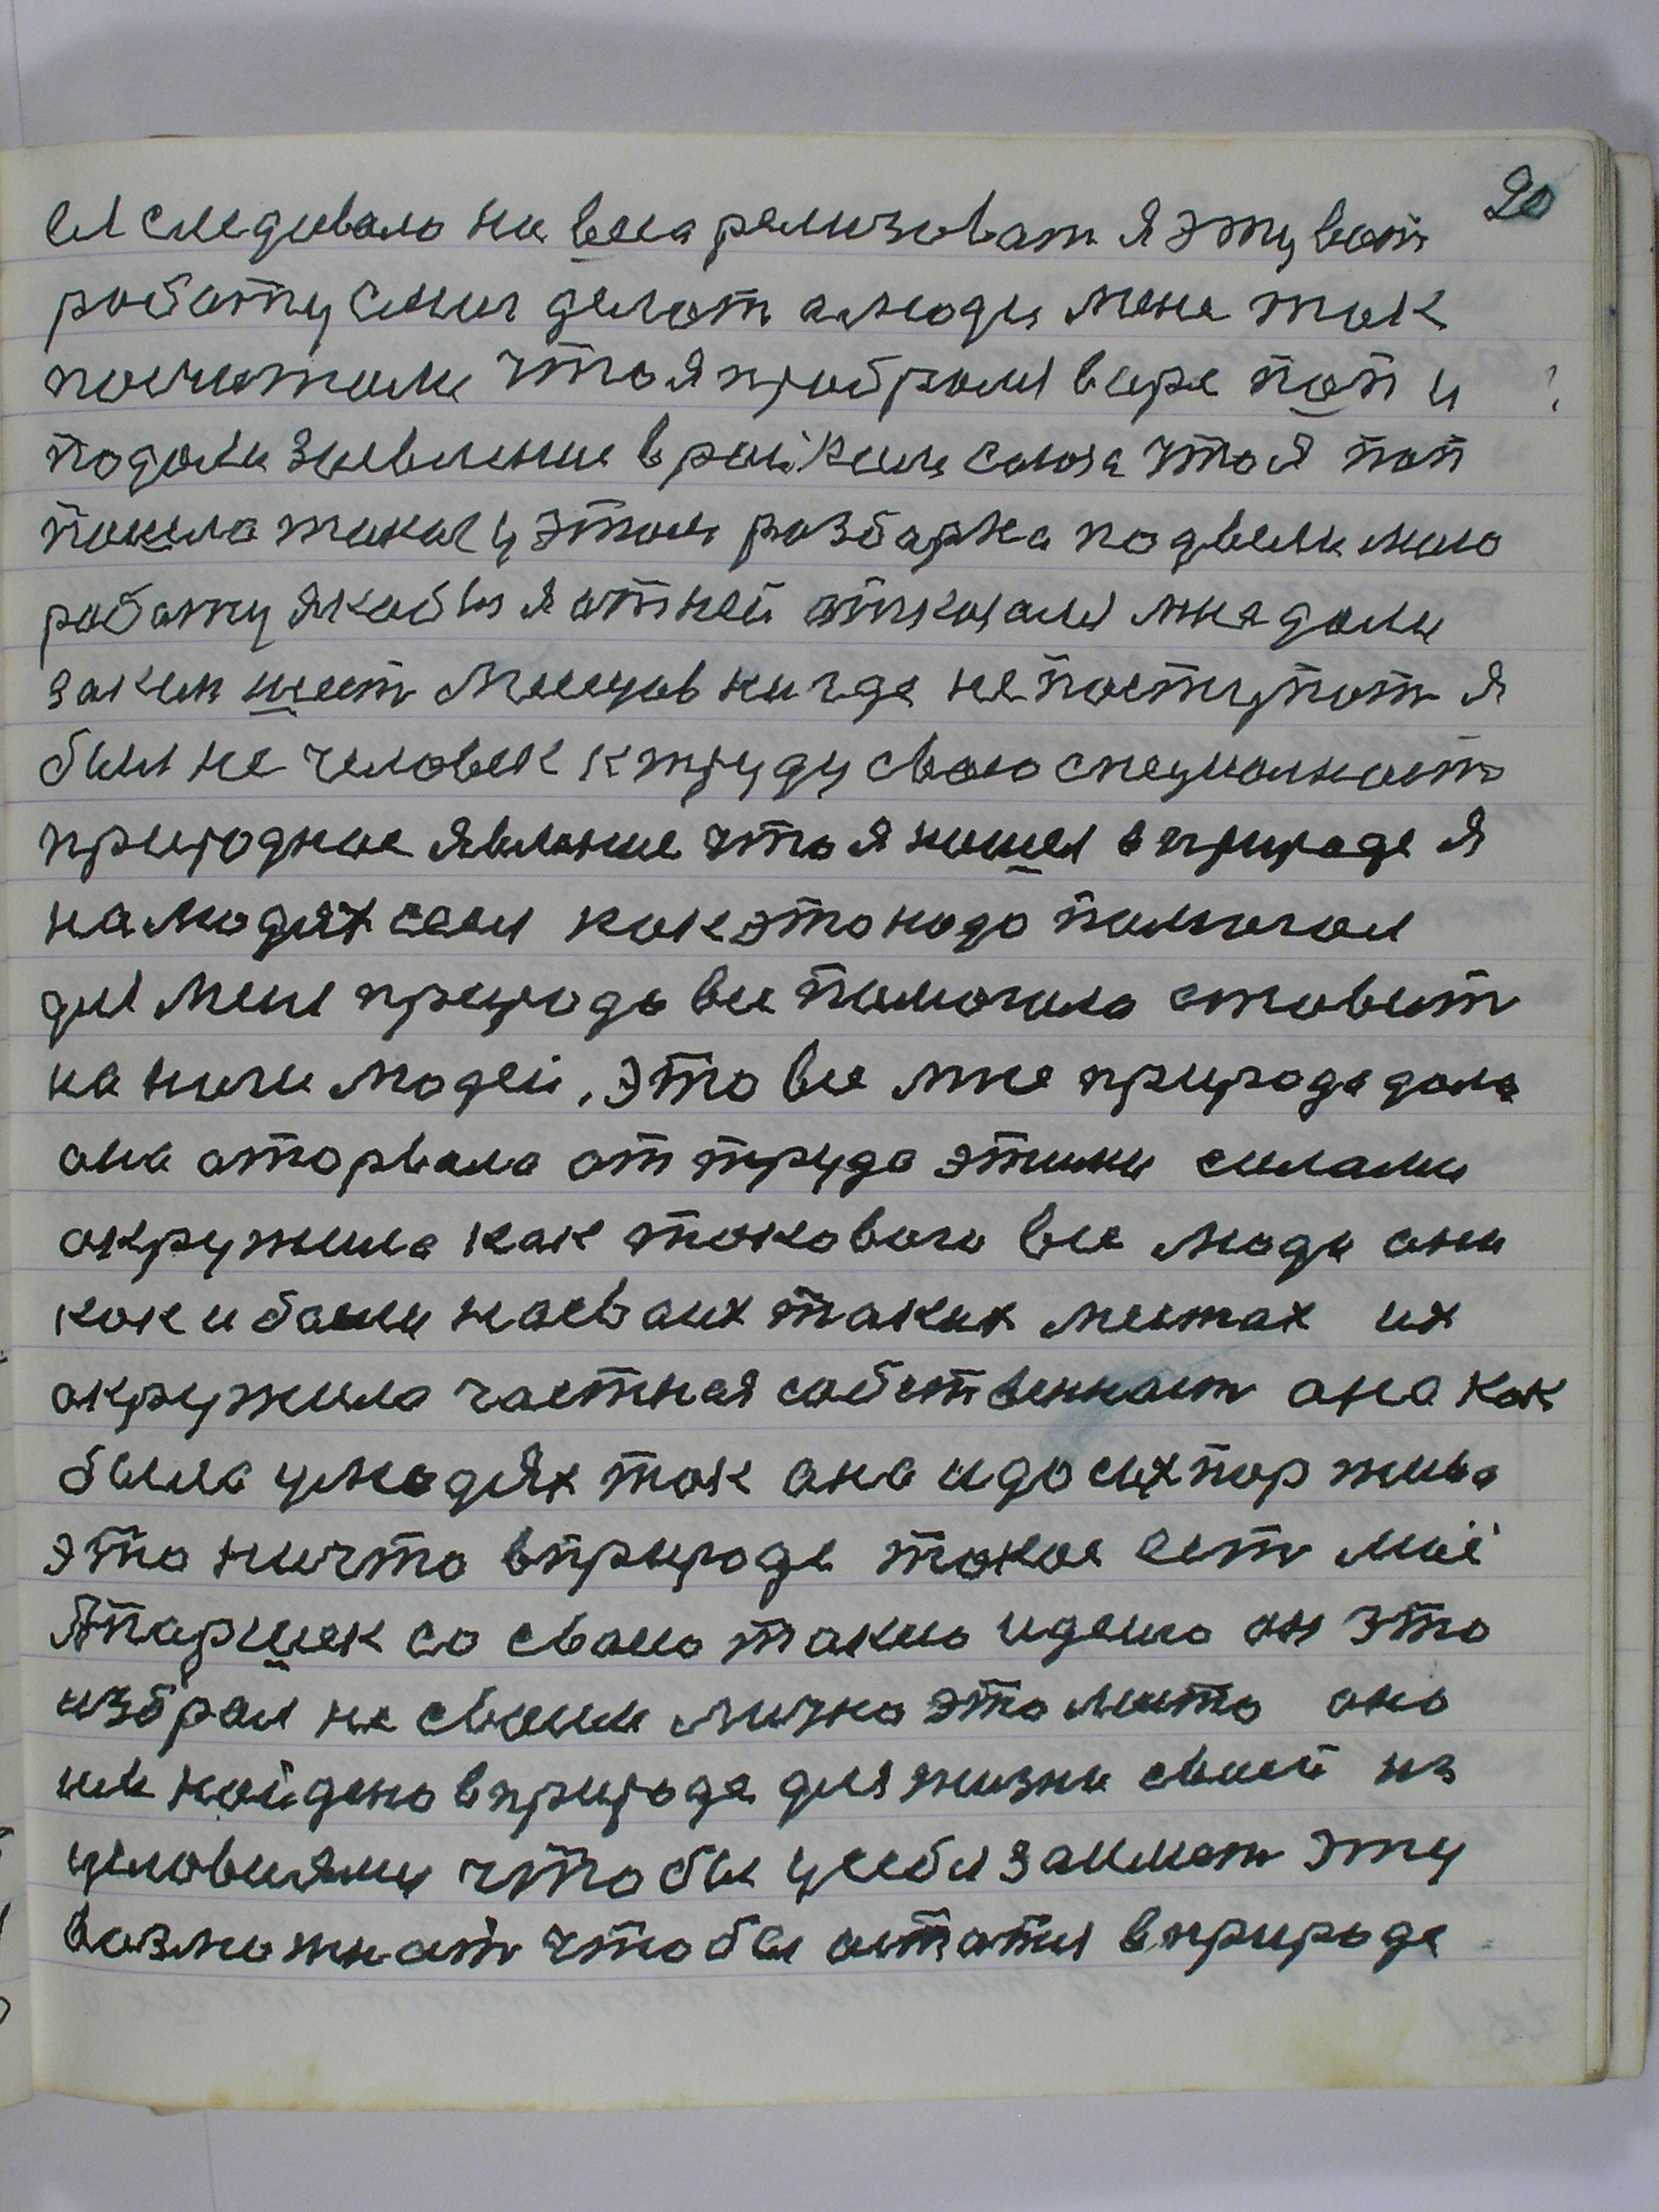 20
ил следивало на веса рализоват я эту вот
работу смил делат а люди мене так
посчитали что я прибрался вере поп и
подали заевление в райком союза что я поп
пошла такая у этом разбарка подвели мою
работу якобы я от ней отказался мне дали
заким шест месецов нигде не поступат я
был не человек к труду свою специолност
природное явление что я нашел в природе я
на людях сеял как это надо помогал
для мене природа все помогала ставит
на ноги людей, это все мне природа дала
она оторвала от труда этими силами
окружила как токового все люди они
как и были на своих таких местах их
окружила частная собственност она как
была у людях так она и до сих пор жива
это ничто в природе такое ест моё
Я паршек со своею такою идеею он это
избрал на своем лично это место оно
им найдено в природе для жизни своей из
условиями что бы у себя заимет эту
возможност что бы остатся в природе